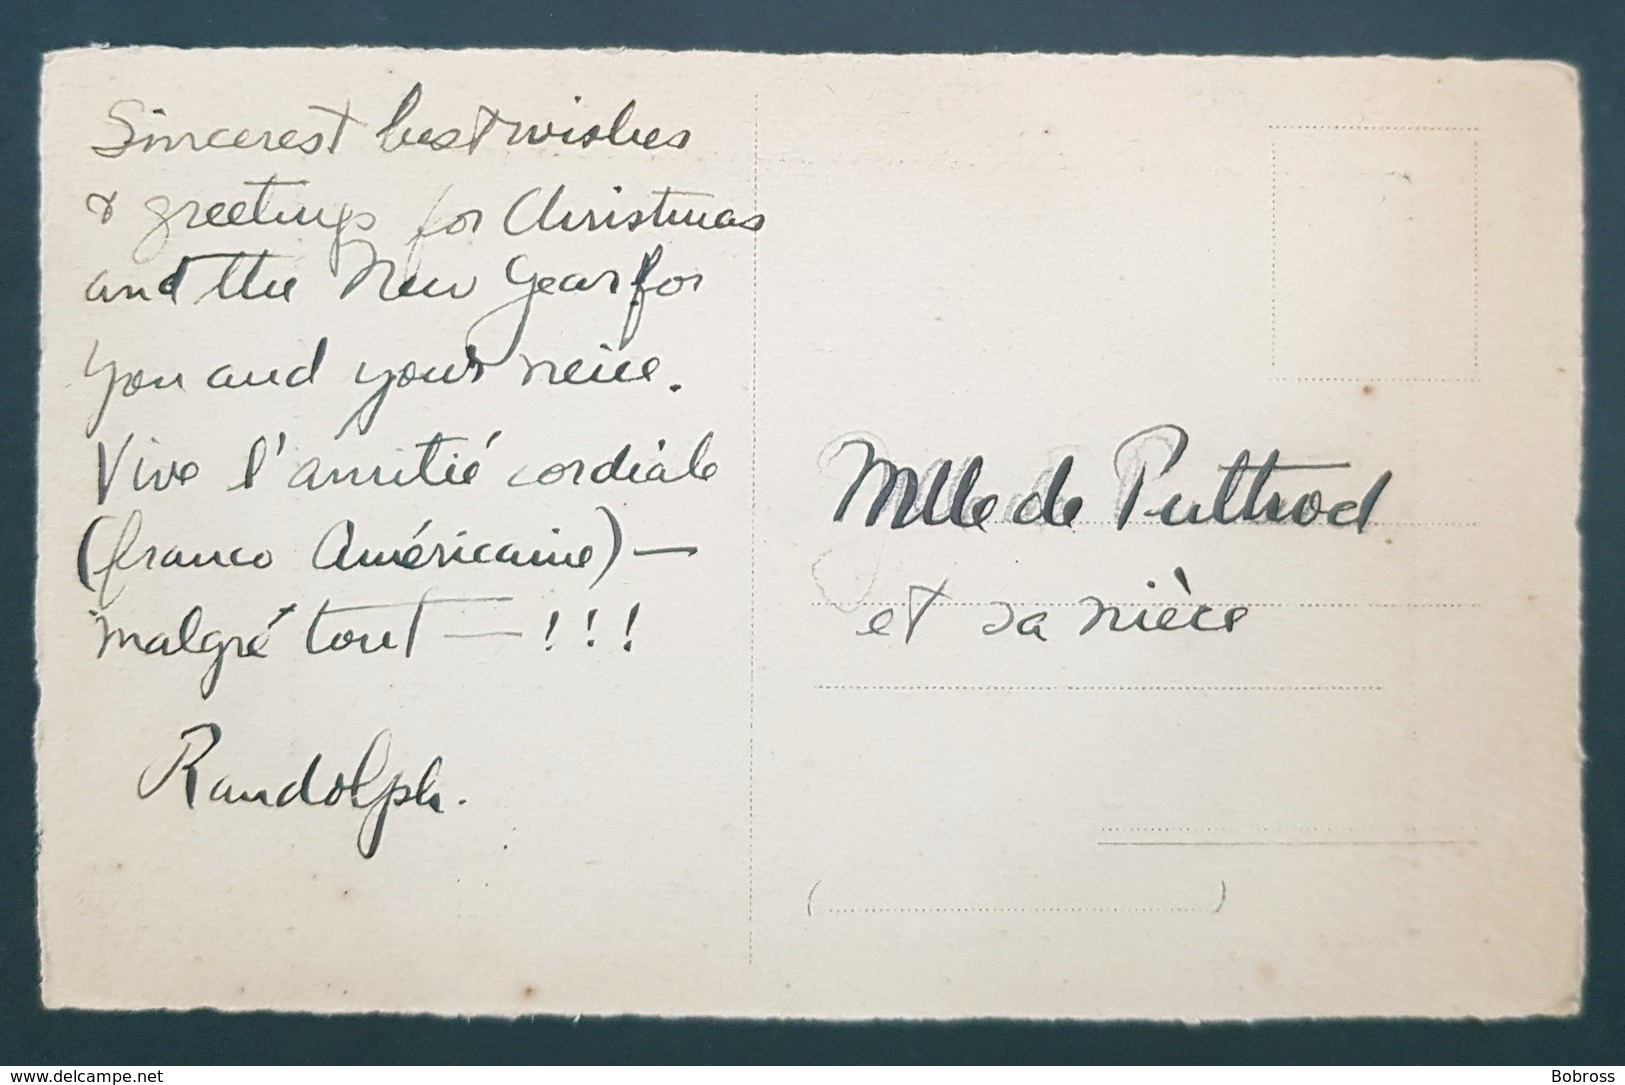 Sincerest best wishes
& greetings for Christmas
and the New Year for
you and your neice.
Vive l'amitié cordiale
(franco Américaine) —
malgré tout — ! ! !
Randolph.
Mlle de Puttrod
et sa nièce
www.delcampe.net
Bobross